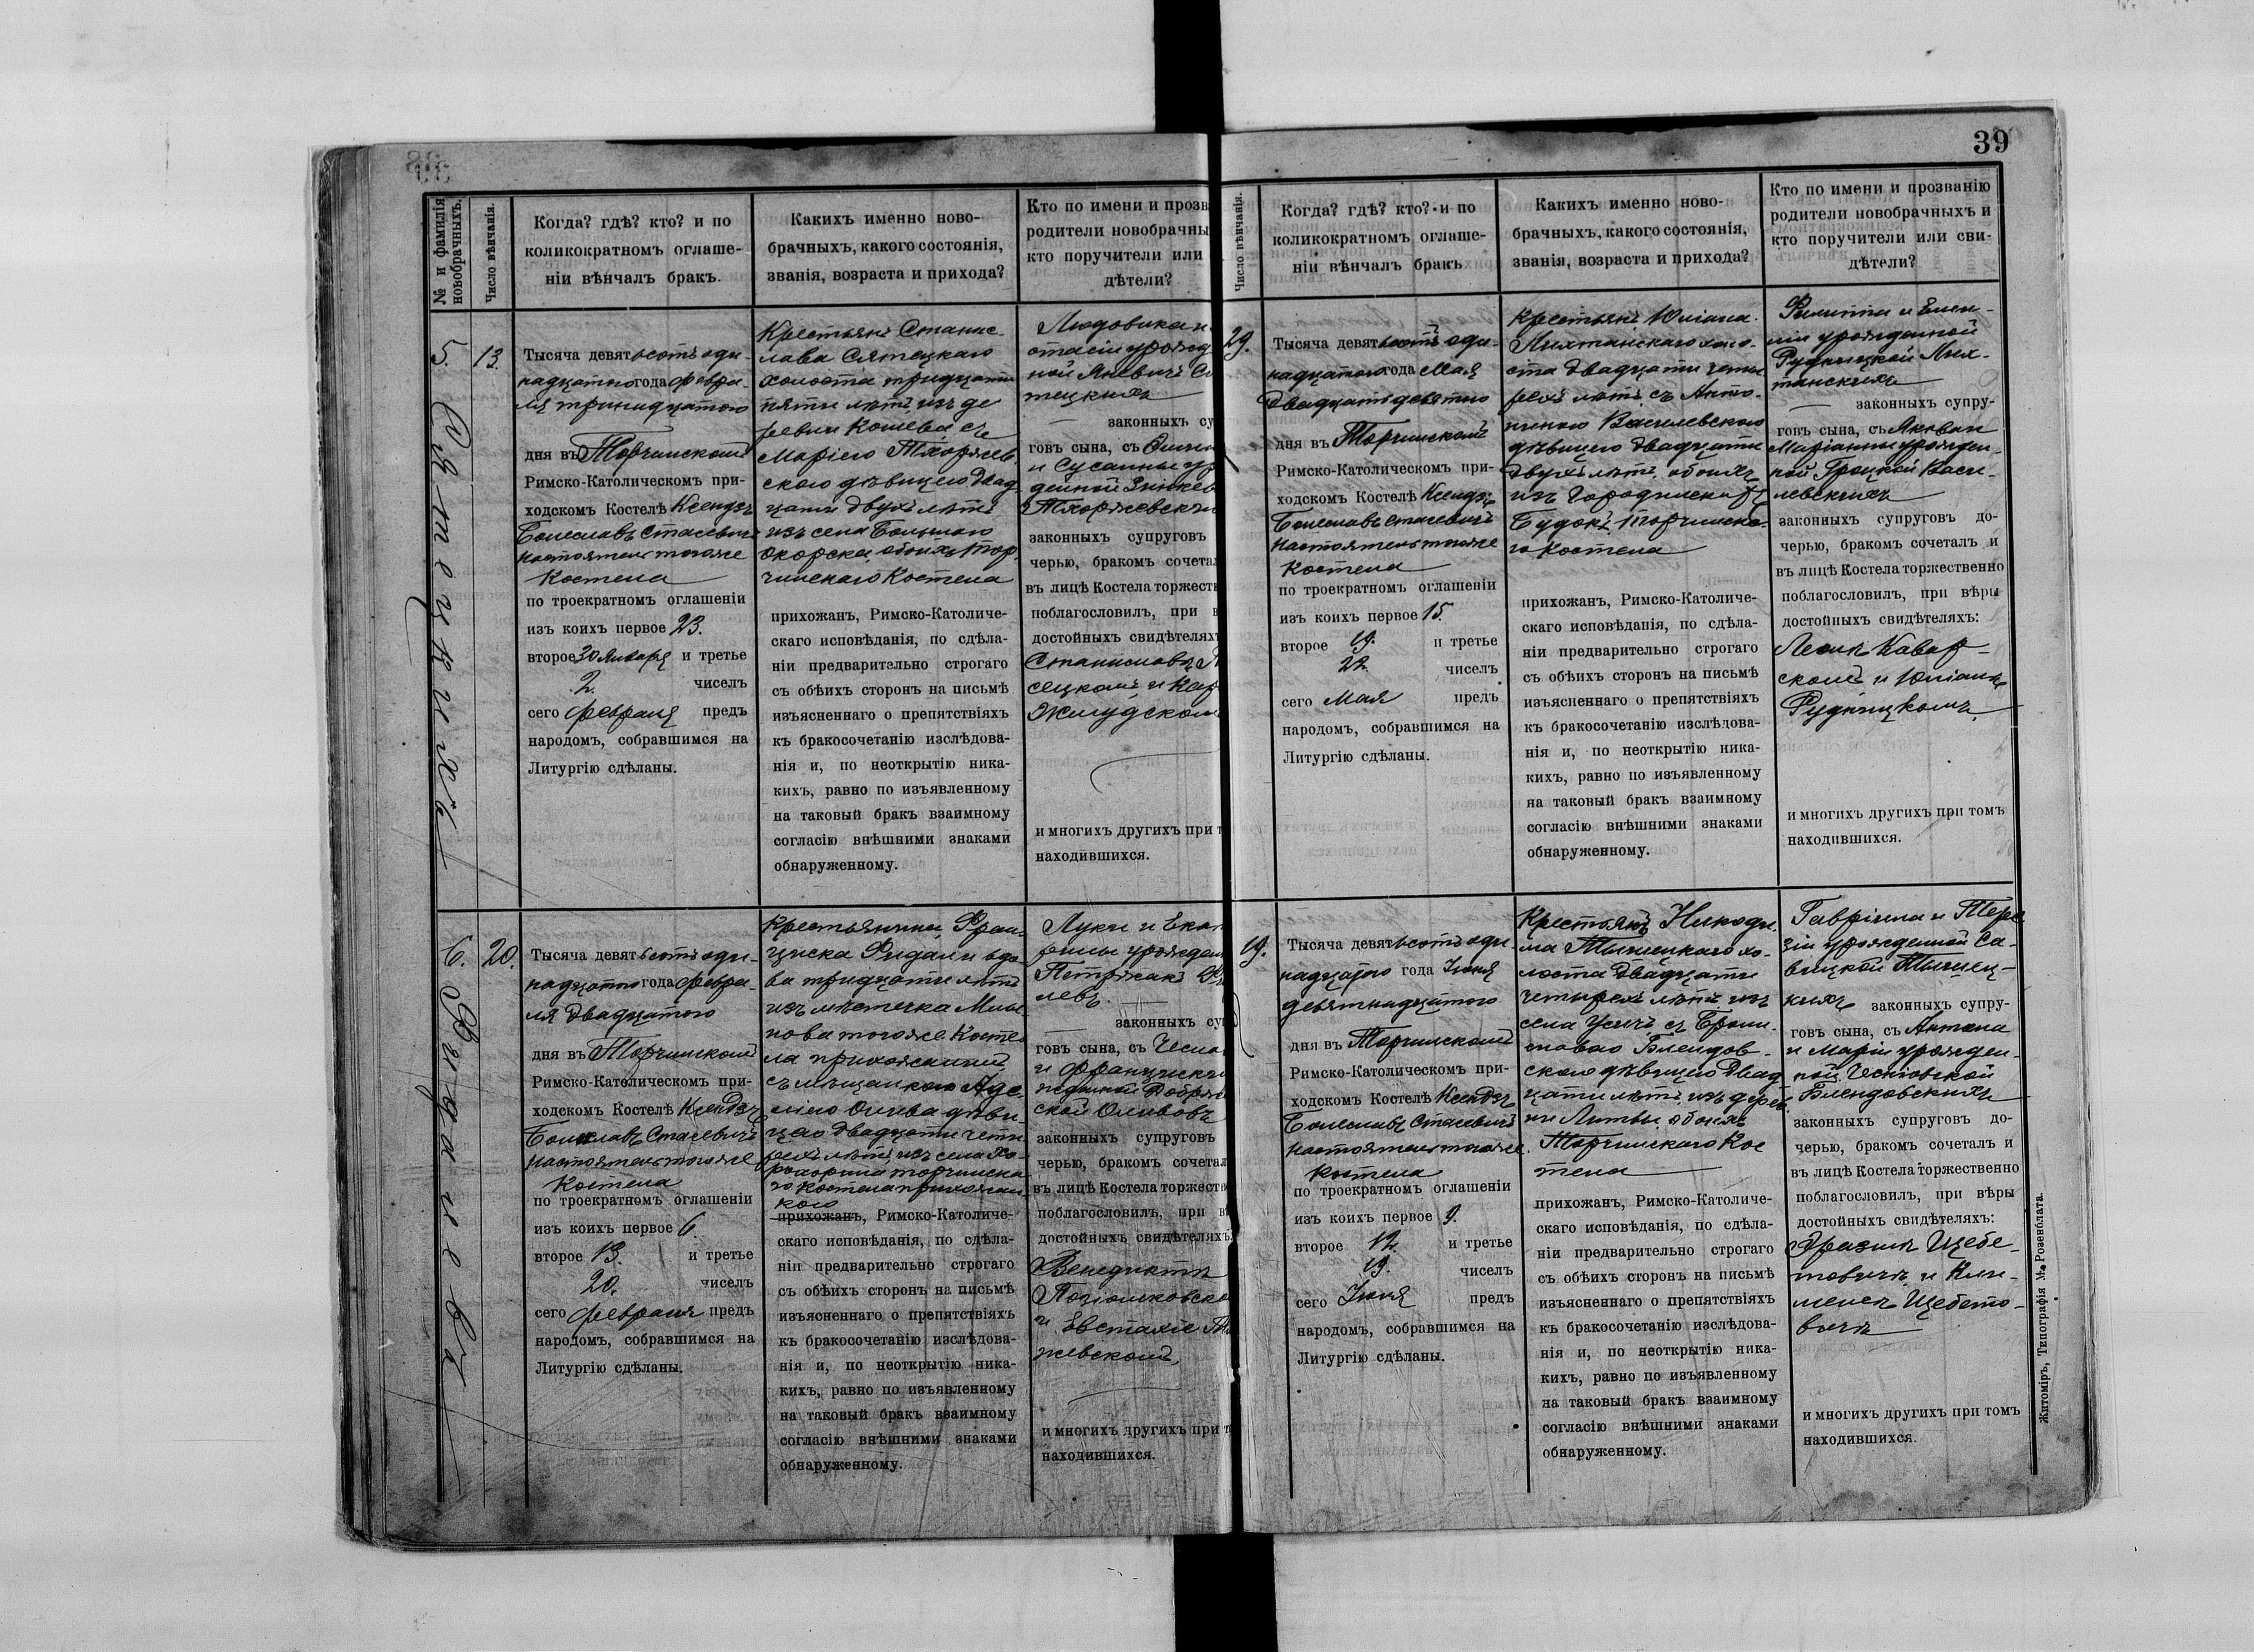 39
№ и фамилія
новобрачныхъ.
Число вѣнчанія.
Когда? гдѣ? кто? и по
коликократномъ оглаше-
ніи вѣнчалъ бракъ.
Какихъ именно ново-
брачныхъ, какого состоянія,
званія, возраста и прихода?
Кто по имени и прозв
родители новобрачны
кто поручители или
дѣтели?
5.
13.
Тысяча девятьсотъ оди-
надцатого года Февра-
ля тринадцатого
дня въ Торчинскомъ
Римско-Католическомъ при-
ходскомъ Костелѣ Ксендзъ
Болеславъ Стасевичъ
настоятель того же
Костела
по троекратномъ оглашеніи
изъ коихъ первое 23.
второе 30 Января и третье
2. чиселъ
сего Февраля предъ
народомъ, собравшимся на
Литургію сдѣланы.
Крестьянъ Станис-
лава Сятецкаго
холоста тридцати
пяти лѣтъ изъ де
ревни Кошева съ
Маріею Тхоржев
скою дѣвицею двад
цати двухъ лѣтъ
изъ села Большого
Окорска, обоихъ Тор
чинскаго Костела
прихожанъ, Римско-Католиче-
скаго исповѣданія, по сдѣла-
ніи предварительно строгаго
съ обѣихъ сторонъ на письмѣ
изъясненнаго о препятствіяхъ
къ бракосочетанію изслѣдова-
нія и, по неоткрытію ника-
кихъ, равно по изъявленному
на таковый бракъ взаимному
согласію внѣшними знаками
обнаруженному.
Людовика и
стасіи урожд
ной Яневичъ С
тецкихъ
законныхъ су
говъ сына, съ
и Сусанны ур
денной Зинкев
Тхоржевски
законныхъ супруговъ
черью, бракомъ сочета
въ лицѣ Костела торжеств
поблагословилъ, при в
достойныхъ свидѣтелях
Станиславъ
сецкомъ и Кар
Жмудском
и многихъ другихъ при т
находившихся.
6.
20.
Тысяча девятьсотъ оди-
надцатого года Февра-
ля двадцатого
дня въ Торчинскомъ
Римско-Католическомъ при-
ходскомъ Костелѣ Ксендзъ
Болеславъ Стасевичъ
настоятель того же
Костела
по троекратномъ оглашеніи
изъ коихъ первое 6.
второе 13. и третье
20. чиселъ
сего Февраля предъ
народомъ, собравшимся на
Литургію сдѣланы.
Крестьянина Фран-
циска Фидали вдо
ва тридцати лѣтъ
изъ мѣстечка
того же Косте
ла прихожанина
съ мѣщанкою Аде
ліею Олива дѣви
цею двадцати четы
рехъ лѣтъ изъ села Хо
Торчинска
го Костела прихожан
кою
прихожанъ, Римско-Католиче-
скаго исповѣданія, по сдѣла-
ніи предварительно строгаго
съ обѣихъ сторонъ на письмѣ
изъясненнаго о препятствіяхъ
къ бракосочетанію изслѣдова-
нія и, по неоткрытію ника-
кихъ, равно по изъявленному
на таковый бракъ взаимному
согласію внѣшними знаками
обнаруженному.
Луки и Екат
рины урожден
Петржакъ
левъ.
законныхъ су
говъ сына, съ Чесла
и Францишки
жденной Добрян
ской Оливовъ
законныхъ супруговъ
черью, бракомъ сочетал
въ лицѣ Костела торжеств
поблагословилъ, при в
достойныхъ свидѣтеляхъ
Венедиктъ
Позіомковско
и Евстахіе
жевскомъ
и многихъ другихъ при т
находившихся.
Число вѣнчанія.
Когда? гдѣ? кто? и по
коликократномъ оглаше-
ніи вѣнчалъ бракъ
Какихъ именно ново-
брачныхъ, какого состоянія,
званія, возраста и прихода?
Кто по имени и прозванію
родители новобрачныхъ и
кто поручители или сви-
дѣтели?
29.
Тысяча девятьсотъ оди-
надцатого года Мая
двадцать девятого
дня въ Торчинскомъ
Римско-Католическомъ при-
ходскомъ Костелѣ Ксендзъ
Болеславъ Стасевичъ
настоятель того же
Костела
по троекратномъ оглашеніи
изъ коихъ первое 15.
второе 19. и третье
22. чиселъ
сего Мая предъ
народомъ, собравшимся на
Литургію сдѣланы.
Крестьянъ Юліана
Лихтанскаго холо-
ста двадцати четы
рехъ лѣтъ съ Анто-
ниною Василевскою
дѣвицею двадцати
двухъ лѣтъ, обоихъ
изъ Городинскихъ
Будокъ, Торчинска-
го Костела
прихожанъ, Римско-Католиче-
скаго исповѣданія, по сдѣла-
ніи предварительно строгаго
съ обѣихъ сторонъ на письмѣ
изъясненнаго о препятствіяхъ
къ бракосочетанію изслѣдова-
нія и, по неоткрытію ника-
кихъ, равно по изъявленному
на таковый бракъ взаимному
согласію внѣшними знаками
обнаруженному.
Филиппа и
урожденной
Рудницкой Лих-
танскихъ
законныхъ супру-
говъ сына, съ Якова и
Маріанны урожден-
ной Троцкой Васи-
левскихъ
законныхъ супруговъ до-
черью, бракомъ сочеталъ и
въ лицѣ Костела торжественно
поблагословилъ, при вѣры
достойныхъ свидѣтеляхъ:
Леонъ Кавар-
скомъ и Юліанъ
Рудницкомъ
и многихъ другихъ при томъ
находившихся.
19.
Тысяча девятьсотъ оди-
надцатого года Іюня
девятнадцатого
дня въ Торчинскомъ
Римско-Католическомъ при-
ходскомъ Костелѣ Ксендзъ
Болеславъ Стасевичъ
настоятель того же
Костела
по троекратномъ оглашеніи
изъ коихъ первое 9.
второе 12. и третье
19. чиселъ
сего Іюня предъ
народомъ, собравшимся на
Литургію сдѣланы.
Крестьянъ Никоди-
ма Тышецкаго хо-
лоста двадцати
четырехъ лѣтъ изъ
села Усичъ съ Брони-
славою Блендов-
скою дѣвицею двад
цати лѣтъ, изъ дерев
ни Литвы, обоихъ
Торчинскаго Кос
тела
прихожанъ, Римско-Католиче-
скаго исповѣданія, по сдѣла-
ніи предварительно строгаго
съ обѣихъ сторонъ на письмѣ
изъясненнаго о препятствіяхъ
къ бракосочетанію изслѣдова-
нія и, по неоткрытію ника-
кихъ, равно по изъявленному
на таковый бракъ взаимному
согласію внѣшними знаками
обнаруженному.
Гавріила и Тере
зіи урожденной Са-
вицкой Тышец-
кихъ законныхъ супру-
говъ сына, съ Антона
и Маріи урожден-
ной
Блендовскихъ
законныхъ супруговъ до-
черью, бракомъ сочеталъ и
въ лицѣ Костела торжественно
поблагословилъ, при вѣры
достойныхъ свидѣтеляхъ:
Эразмъ Щебе-
товичъ и Кли-
менсъ Щебето-
вичъ
и многихъ другихъ при томъ
находившихся.
Житоміръ, Типографія М. Розенблата.